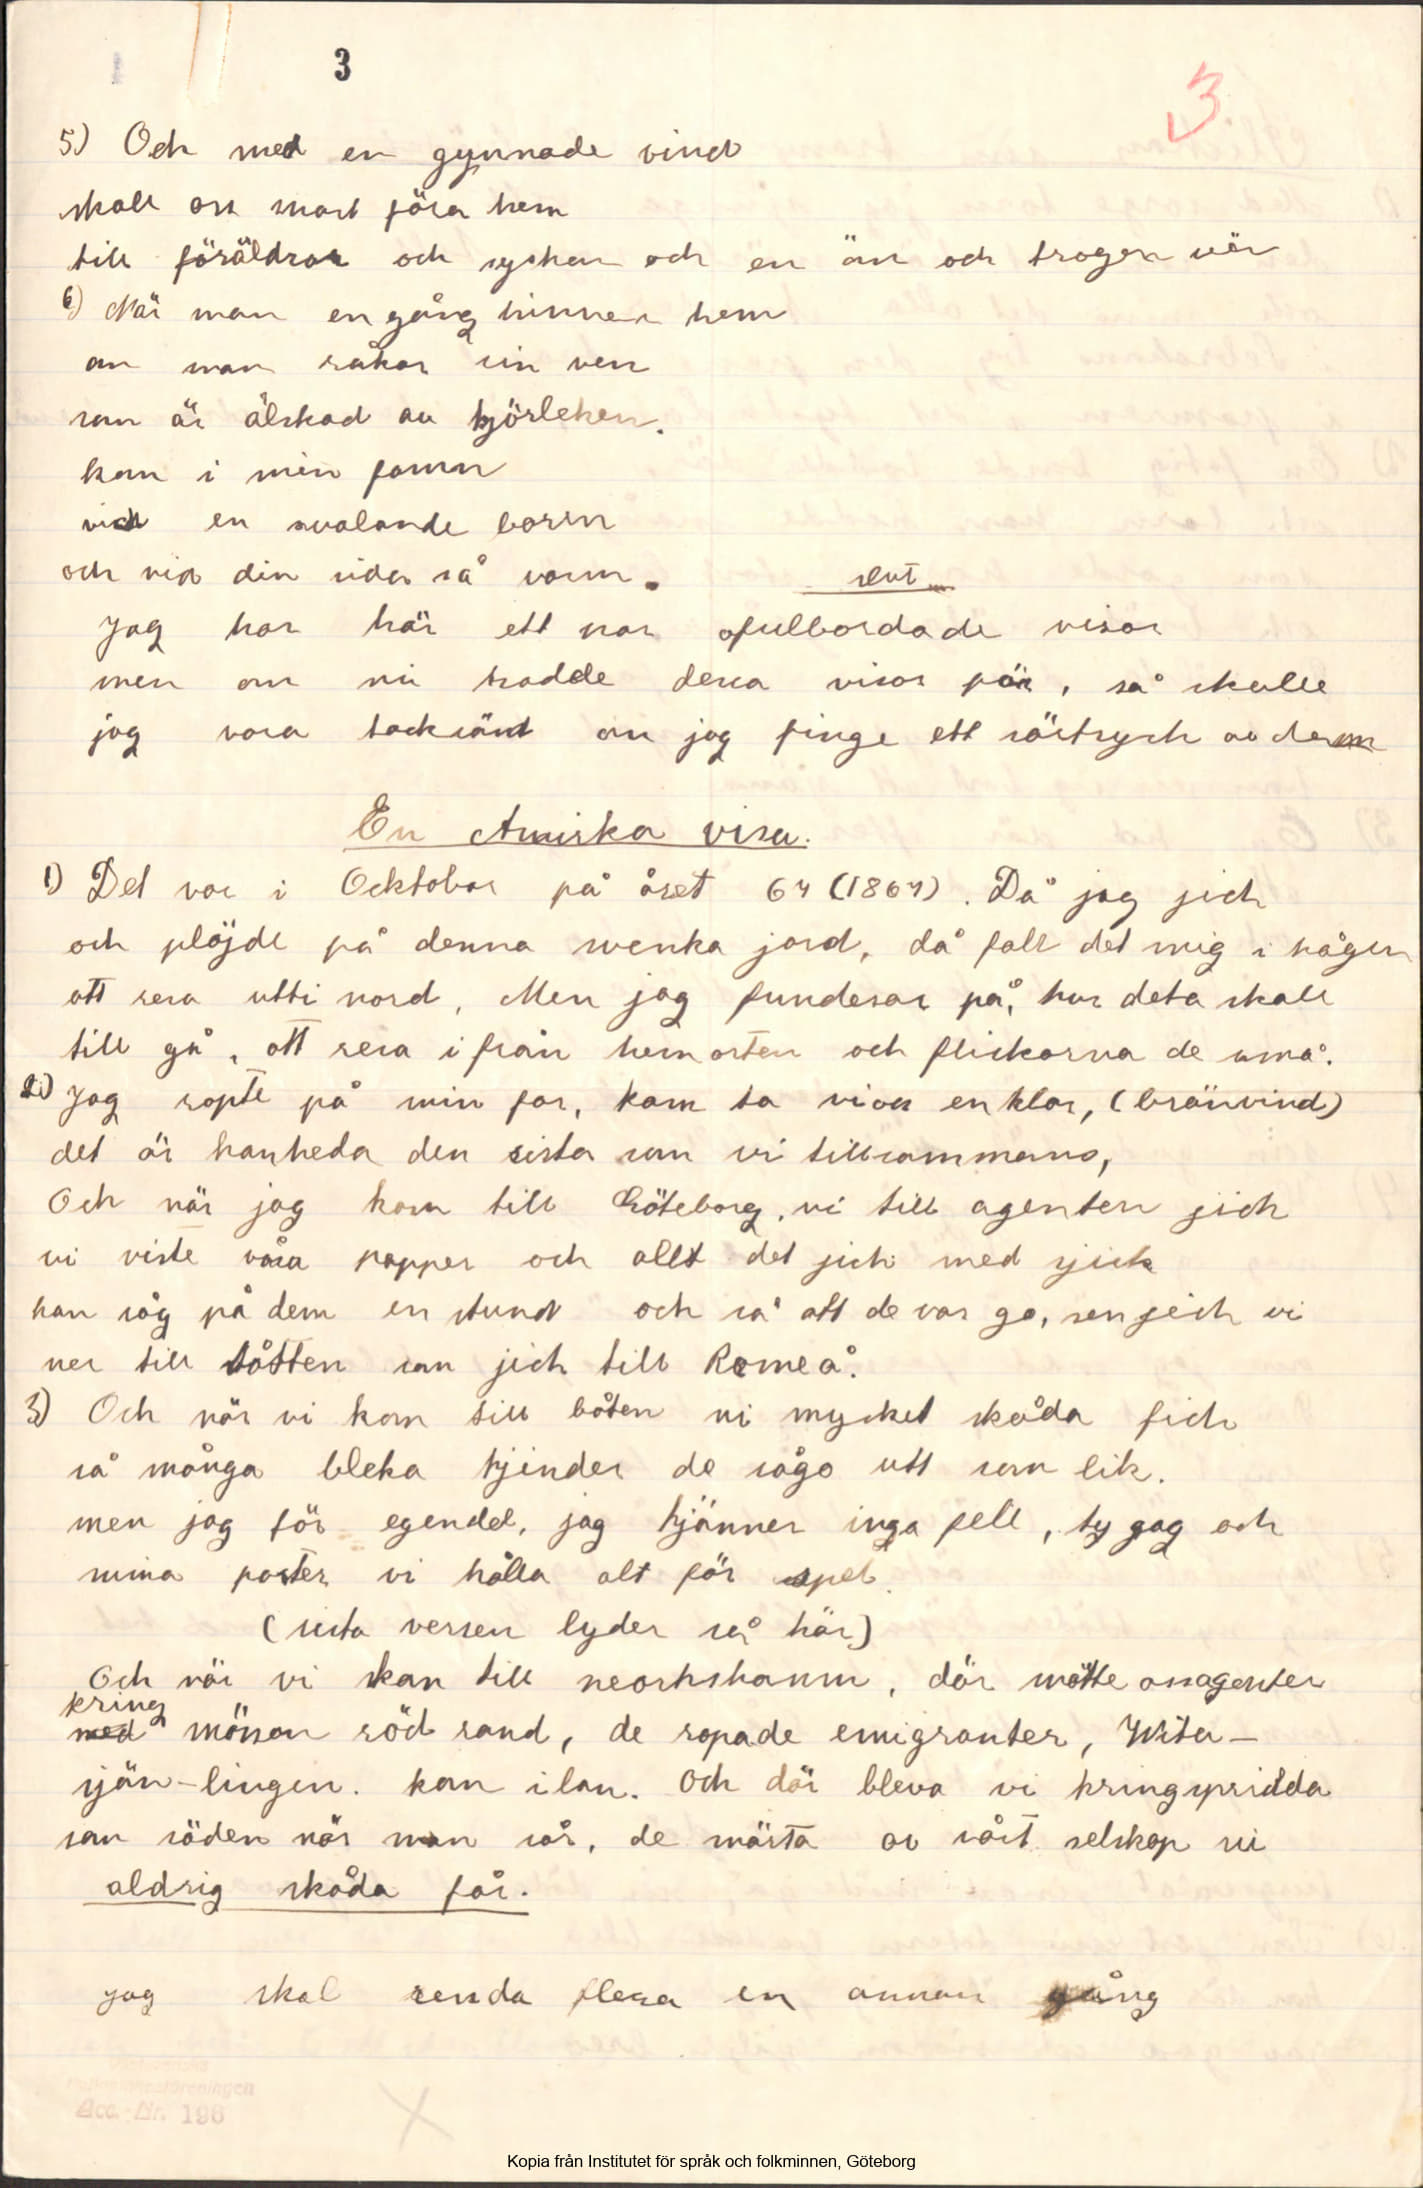 3
3
5) Och med en gynnade vind
skall oss snart föra hem
till föräldrar och syskon och en än och trogen vän
6) När man en gång hinner hem
om man råkar sin ven
som är älskad av kjörleken.
kom i min famn
vid en svalande barm
och vid din sida så varm.
slut
Jag har här ett par ofulbordade visor
men om ni tradde dessa visor på, så skulle
jag vara tacksämt om jag finge ett särtryck av dem
En Amirka visa.
1) Det var i Ocktobar på året 64 (1864). Då jag jich
och plöjde på denna svenka jord, då fall det mig i hågen
att resa utti nord, Men jag funderar på, hur deta skall
till gå, att resa ifrån hemorten och flickorna de små.
2) Jag ropte på min far, kom ta vi oss en klar, (bränvind)
det är hanheda den sista som vi tillsammans,
Och när jag kom till Göteborg, vi till agenten jich
vi viste våra papper och allt det jich med sjick
han såg på dem en stund och sa' att de var go, sen jich vi
ner till båtten som jich till Romeå.
3) Och när vi kom till båten vi mycket skåda fich
så många bleka kjinder de sågo utt som lik.
men jag för egendel, jag kjänner inga fell, ty jag och
mina poster vi hålla alt för spel.
(sista versen lyder så här)
Och när vi kan till neorkshamn, där mötte oss agenter
kring
med mössan röd rand, de ropade emigranter, Wita-
sjän-lingen. kom ilan. Och där bleva vi kringspridda
som säden när man sår, de mästa av vårt selskap vi
aldrig skåda får.
jag skal senda flera en annan gång
Acc. Nr. 196
Kopia från Institutet för språk och folkminnen, Göteborg